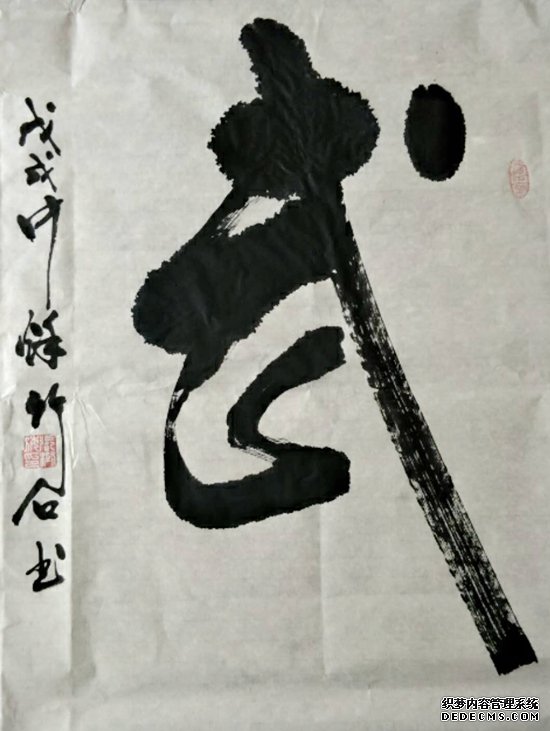 武
戊戌中秋竹石书
织梦内容管理系统
DEDECMS.COM